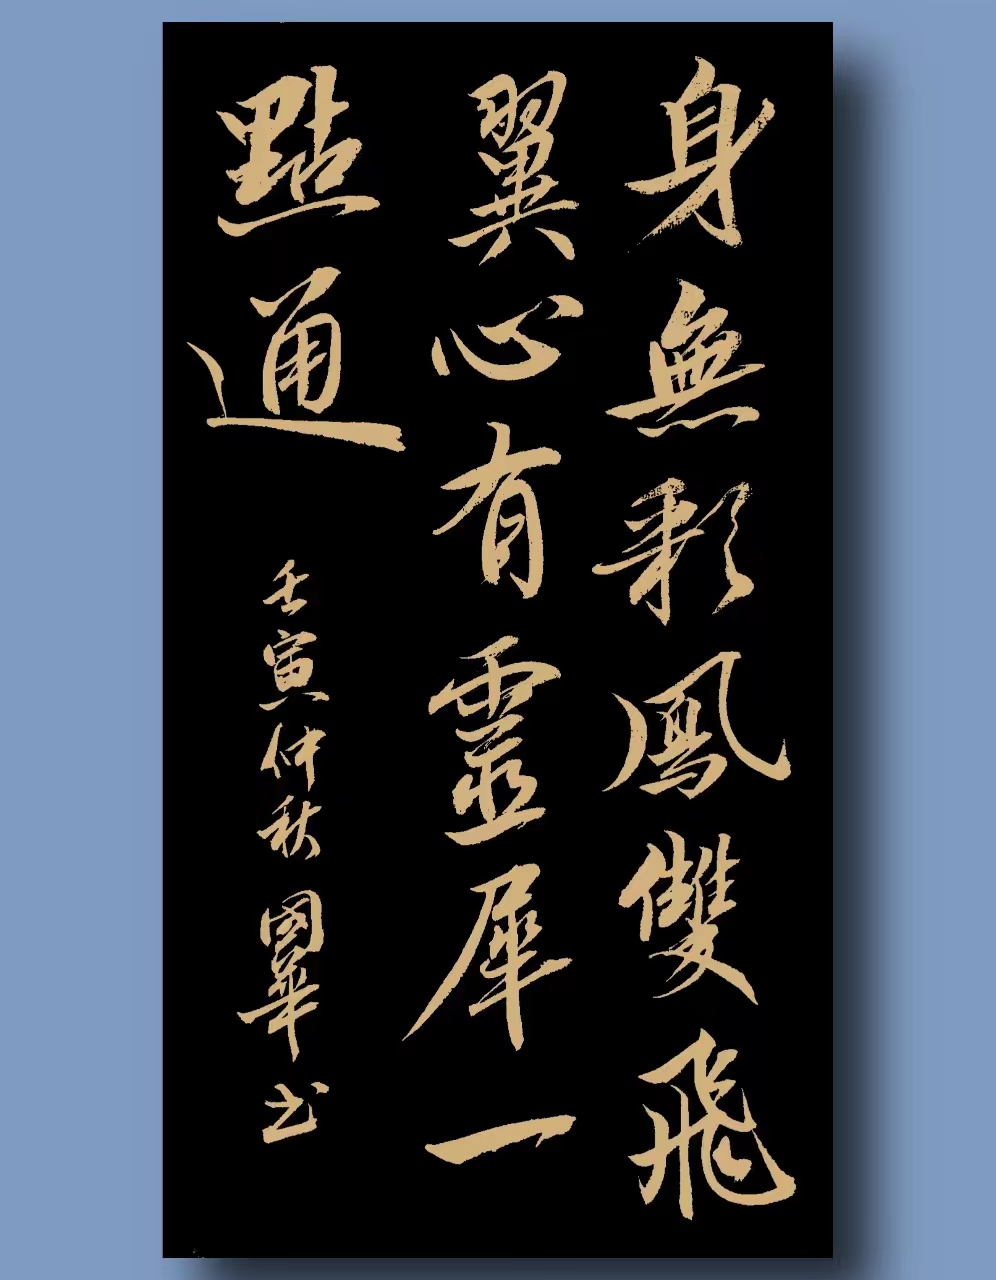 身無彩鳳雙飛
翼心有靈犀一
點通
壬寅仲秋國華书